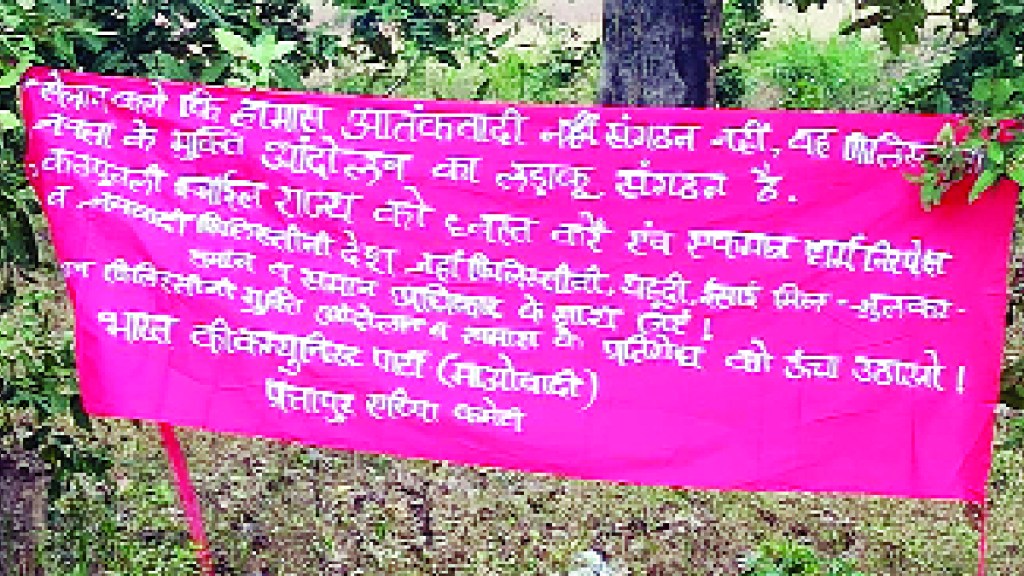 ऐलान करो कि हामास आतंकवादी नहीं संगठन नहीं, यह फिलिस्तीनी
जनता के मुक्ति आंदोलन का लड़ाकू संगठन है.
कठपुतली इजरॉइल राज्य को ध्वस्त करें एंव एकमात्र धर्मनिरपेक्ष
व जनवादी फिलिस्तीनी देश जहां फिलिस्तीनी, यहूदी, ईसाई मिल-जुलकर
समान व समान अधिकार के साथ जिएं!
फिलिस्तीनी मुक्ति आंदोलन व हामास के प्रतिरोध को ऊंचा उठाओ!
भारत की कम्युनिस्ट पार्टी (माओवादी)
एरिया कमेटी